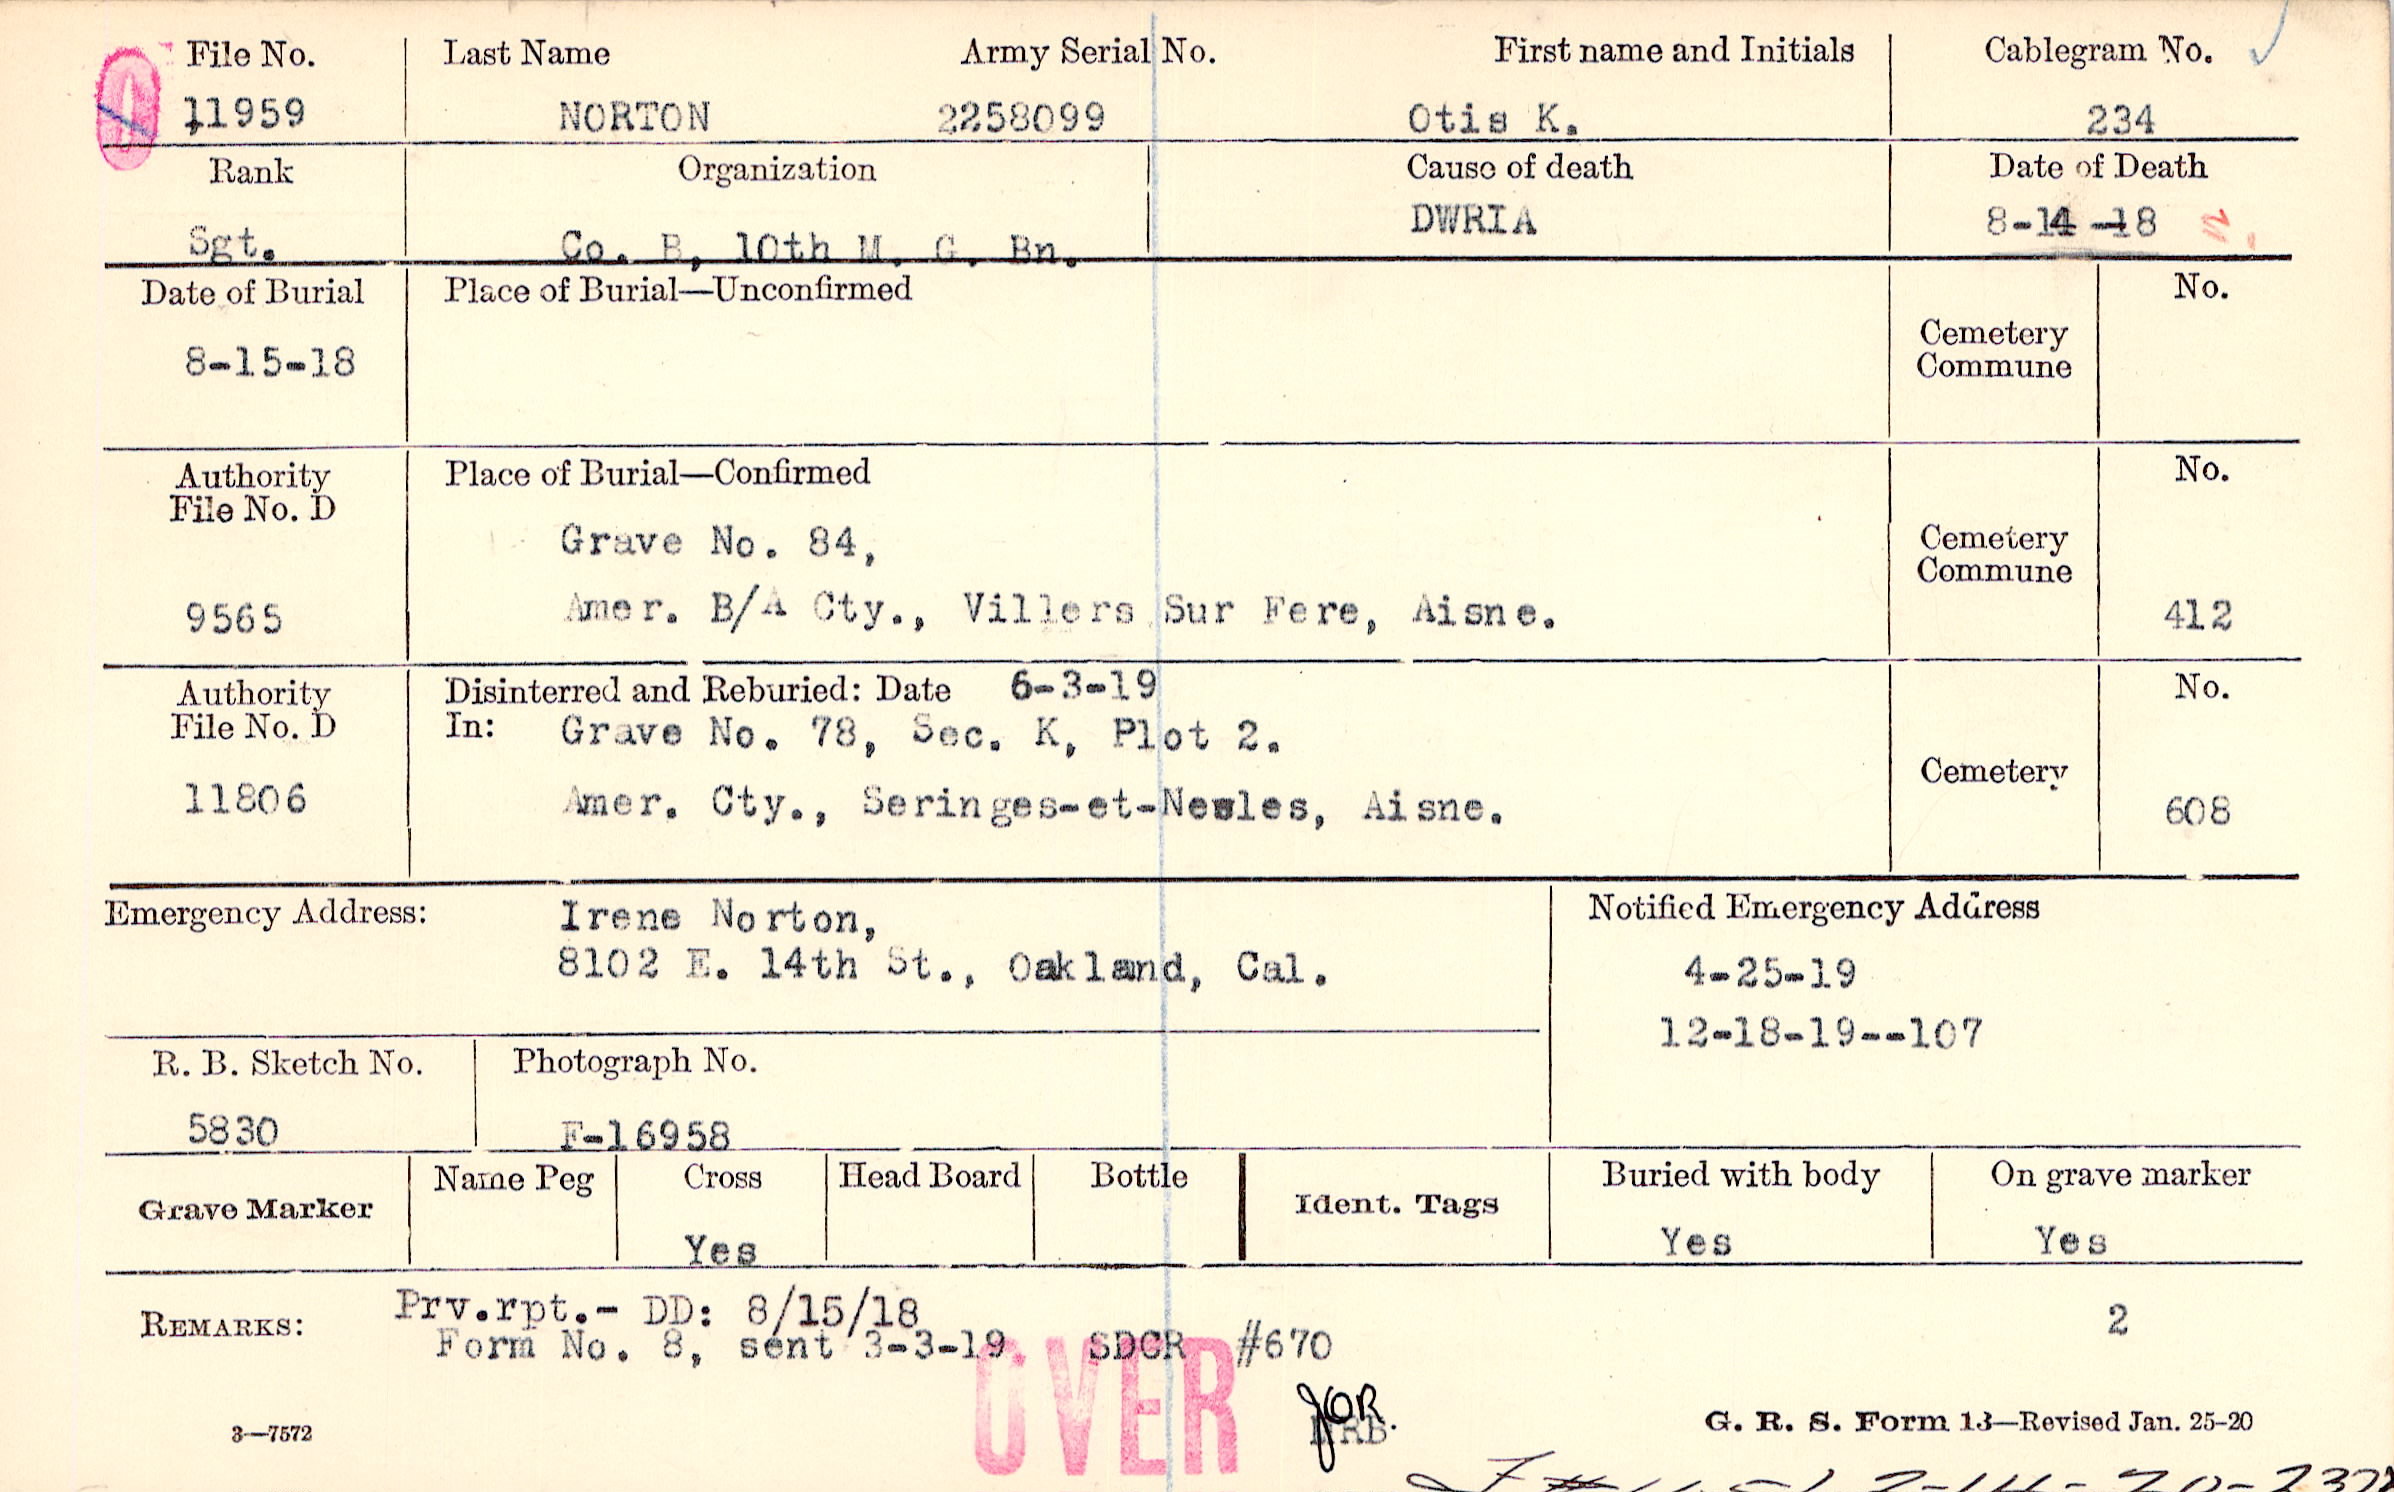 File No. Last Name Army Serial No. First name and Initials Cablegram No.
11959 NORTON 2258099 Otis K. 234
Rank Organization Cause of death Date of Death
Sgt. Co. B, 10th M. G. Bn. DWRIA 8-14-18
Date of Burial Place of Burial—Unconfirmed No.
8-15-18 Cemetery
Commune
Authority Place of Burial—Confirmed No.
File No. D
Grave No. 84, Cemetery
Commune
9565 Amer. B/A Cty., Villers Sur Fere, Aisne. 412
Authority Disinterred and Reburied: Date 6-3-19 No.
File No. D In: Grave No. 78, Sec. K, Plot 2.
Cemetery
11806 Amer. Cty., Seringes-et-Nesles, Aisne. 608
Emergency Address: Irene Norton, Notified Emergency Address
8102 E. 14th St., Oakland, Cal. 4-25-19
12-18-19--107
R. B. Sketch No. Photograph No.
5830 F-16958
Grave Marker Name Peg Cross Head Board Bottle Ident. Tags Buried with body On grave marker
Yes Yes Yes
REMARKS: Prv.rpt.- DD: 8/15/18 2
Form No. 8, sent 3-3-19 SDCR #670
OVER
JOR
3—7572 G. R. S. Form 13—Revised Jan. 25-20